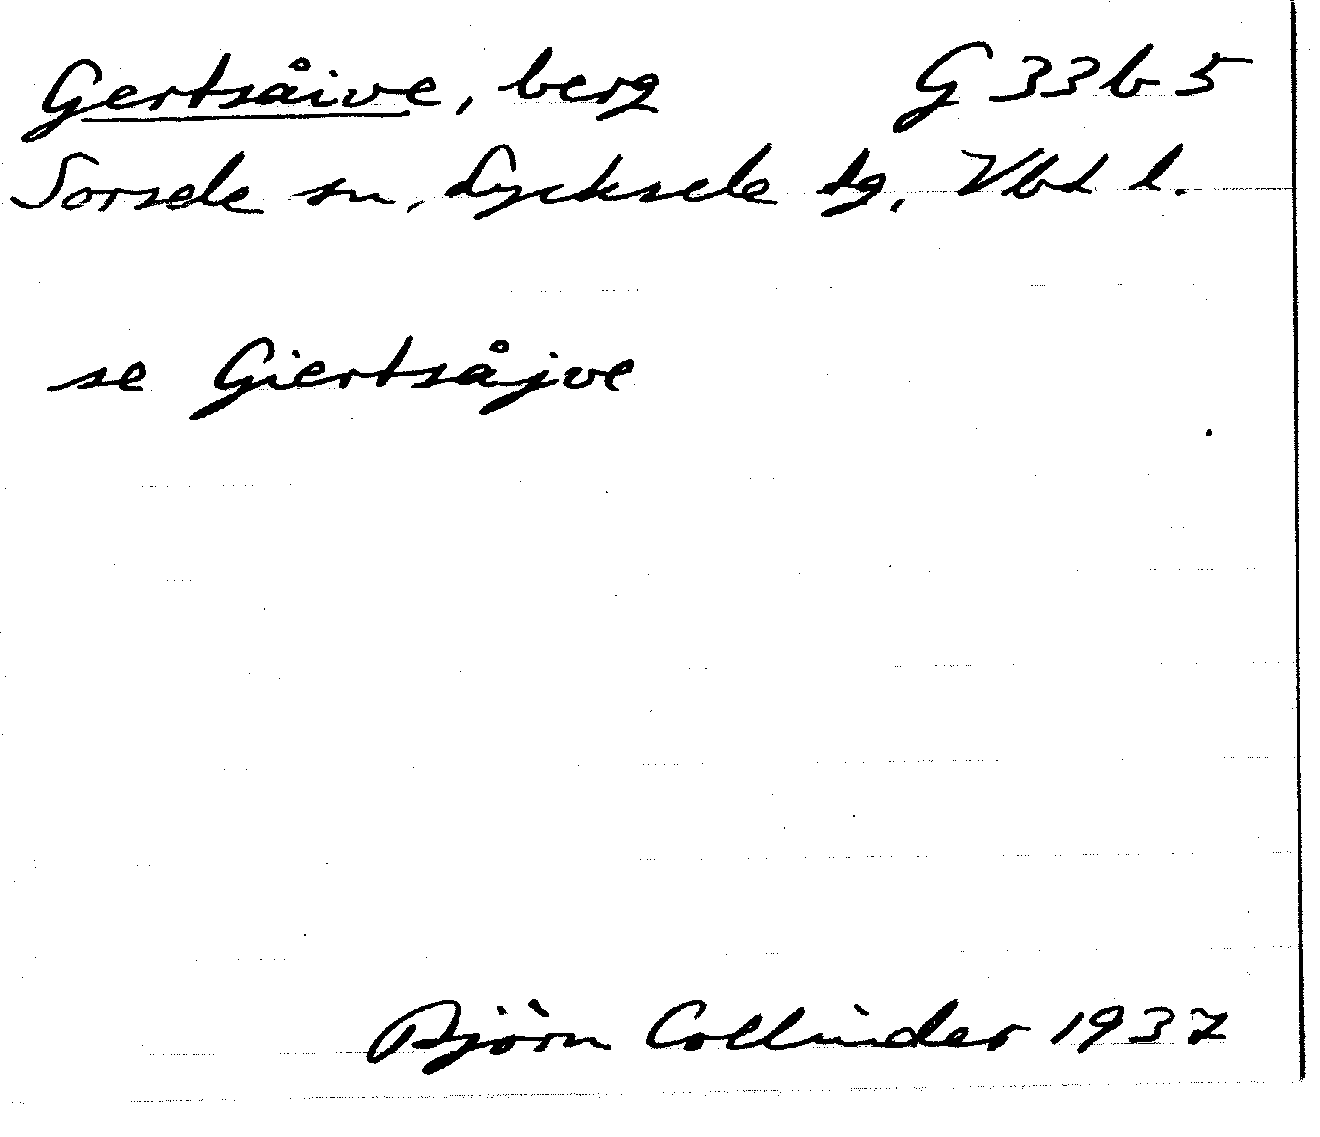 Gertsåive, berg G 33 b 5
Sorsele sn, Lycksele tg, Vbt l.
se Giertsåjve
Björn Collinder 1937